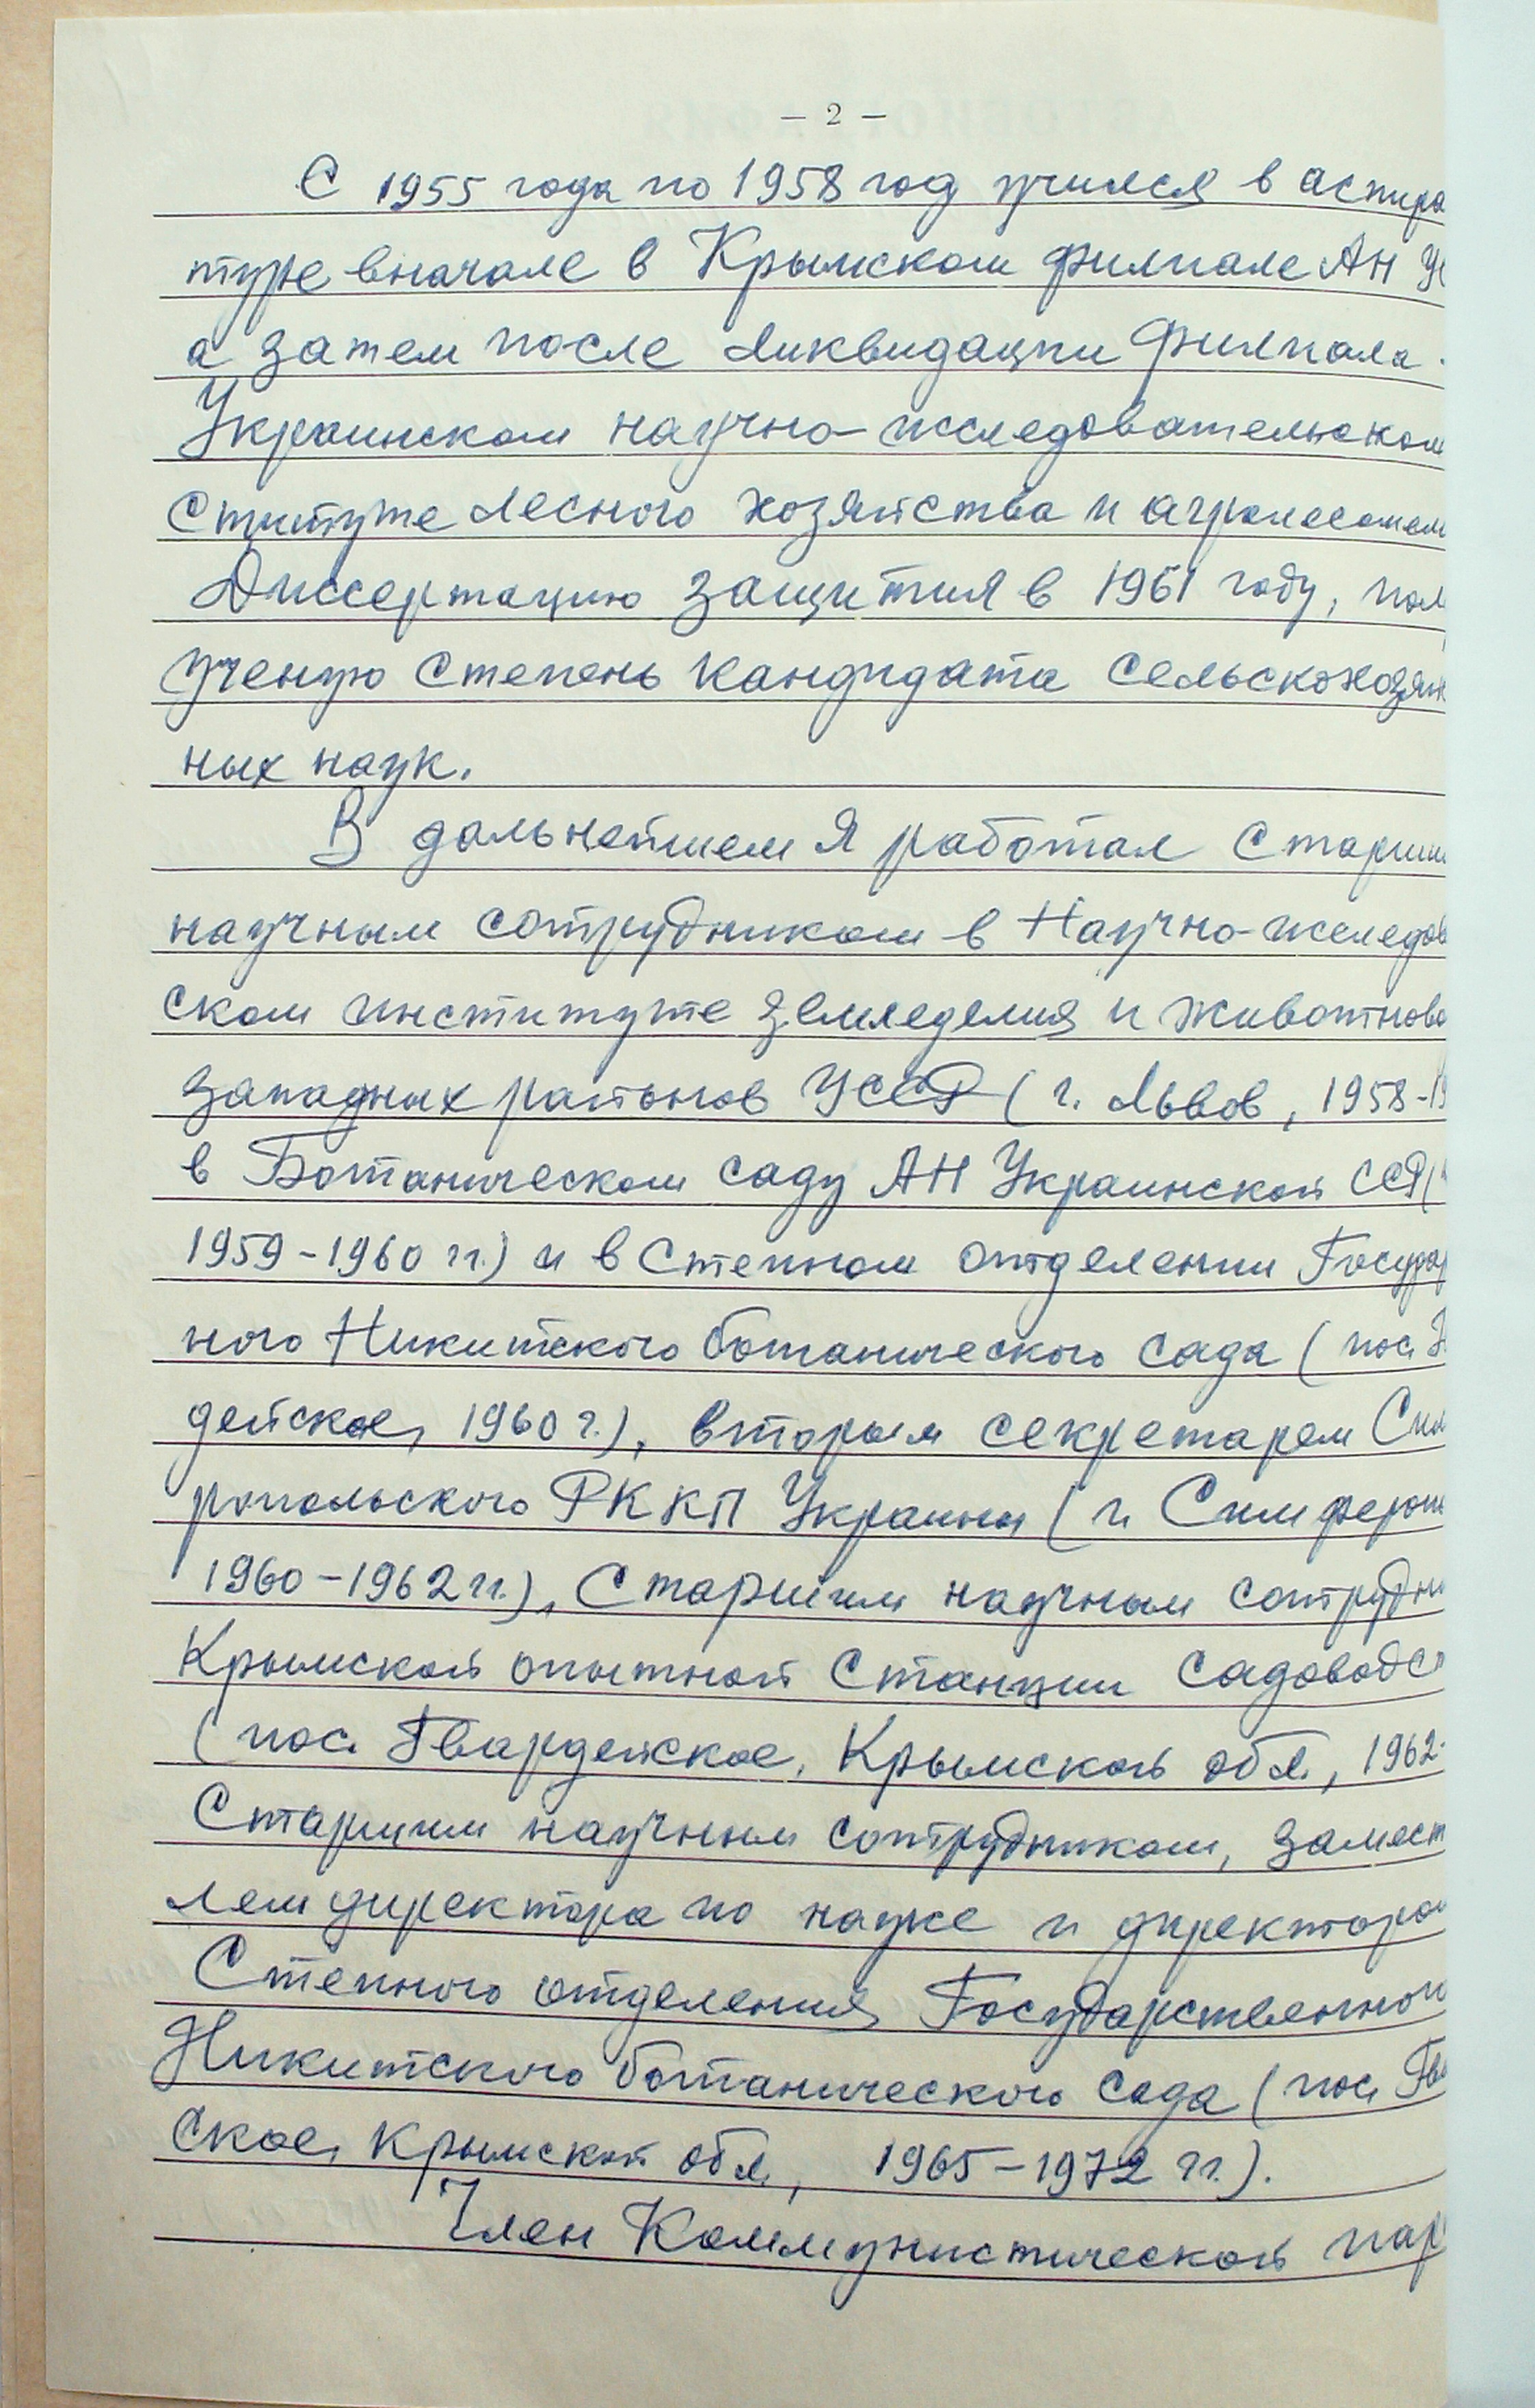 — 2 —
С 1955 года по 1958 год учился в аспира
туре вначале в Крымском филиале АН У
а затем после ликвидации филиала
Украинском научно-исследовательском
ституте лесного хозяйства и агролесомел
Диссертацию защитил в 1961 году, пол
ученую степень кандидата сельскохозяй
ных наук.
В дальнейшем я работал старши
научным сотрудником в Научно-исследов
ском институте земледелия и животново
западных районов УССР (г. Львов, 1958-19
в Ботаническом саду АН Украинской ССР (
1959-1960 гг.) и в Степном отделении Государ
ного Никитского ботанического сада (пос.
дейское, 1960 г.), вторым секретарем Сим
ропольского РК КП Украины (г. Симфероп
1960-1962 гг.), старшим научным сотрудни
Крымской опытной станции садоводс
(пос. Гвардейское, Крымской обл., 1962-
Старшим научным сотрудником, замест
лем директора по науке и директором
Степного отделения Государственного
Никитского ботанического сада (пос. Гва
ское, Крымской обл., 1965-1972 гг.).
Член Коммунистической пар